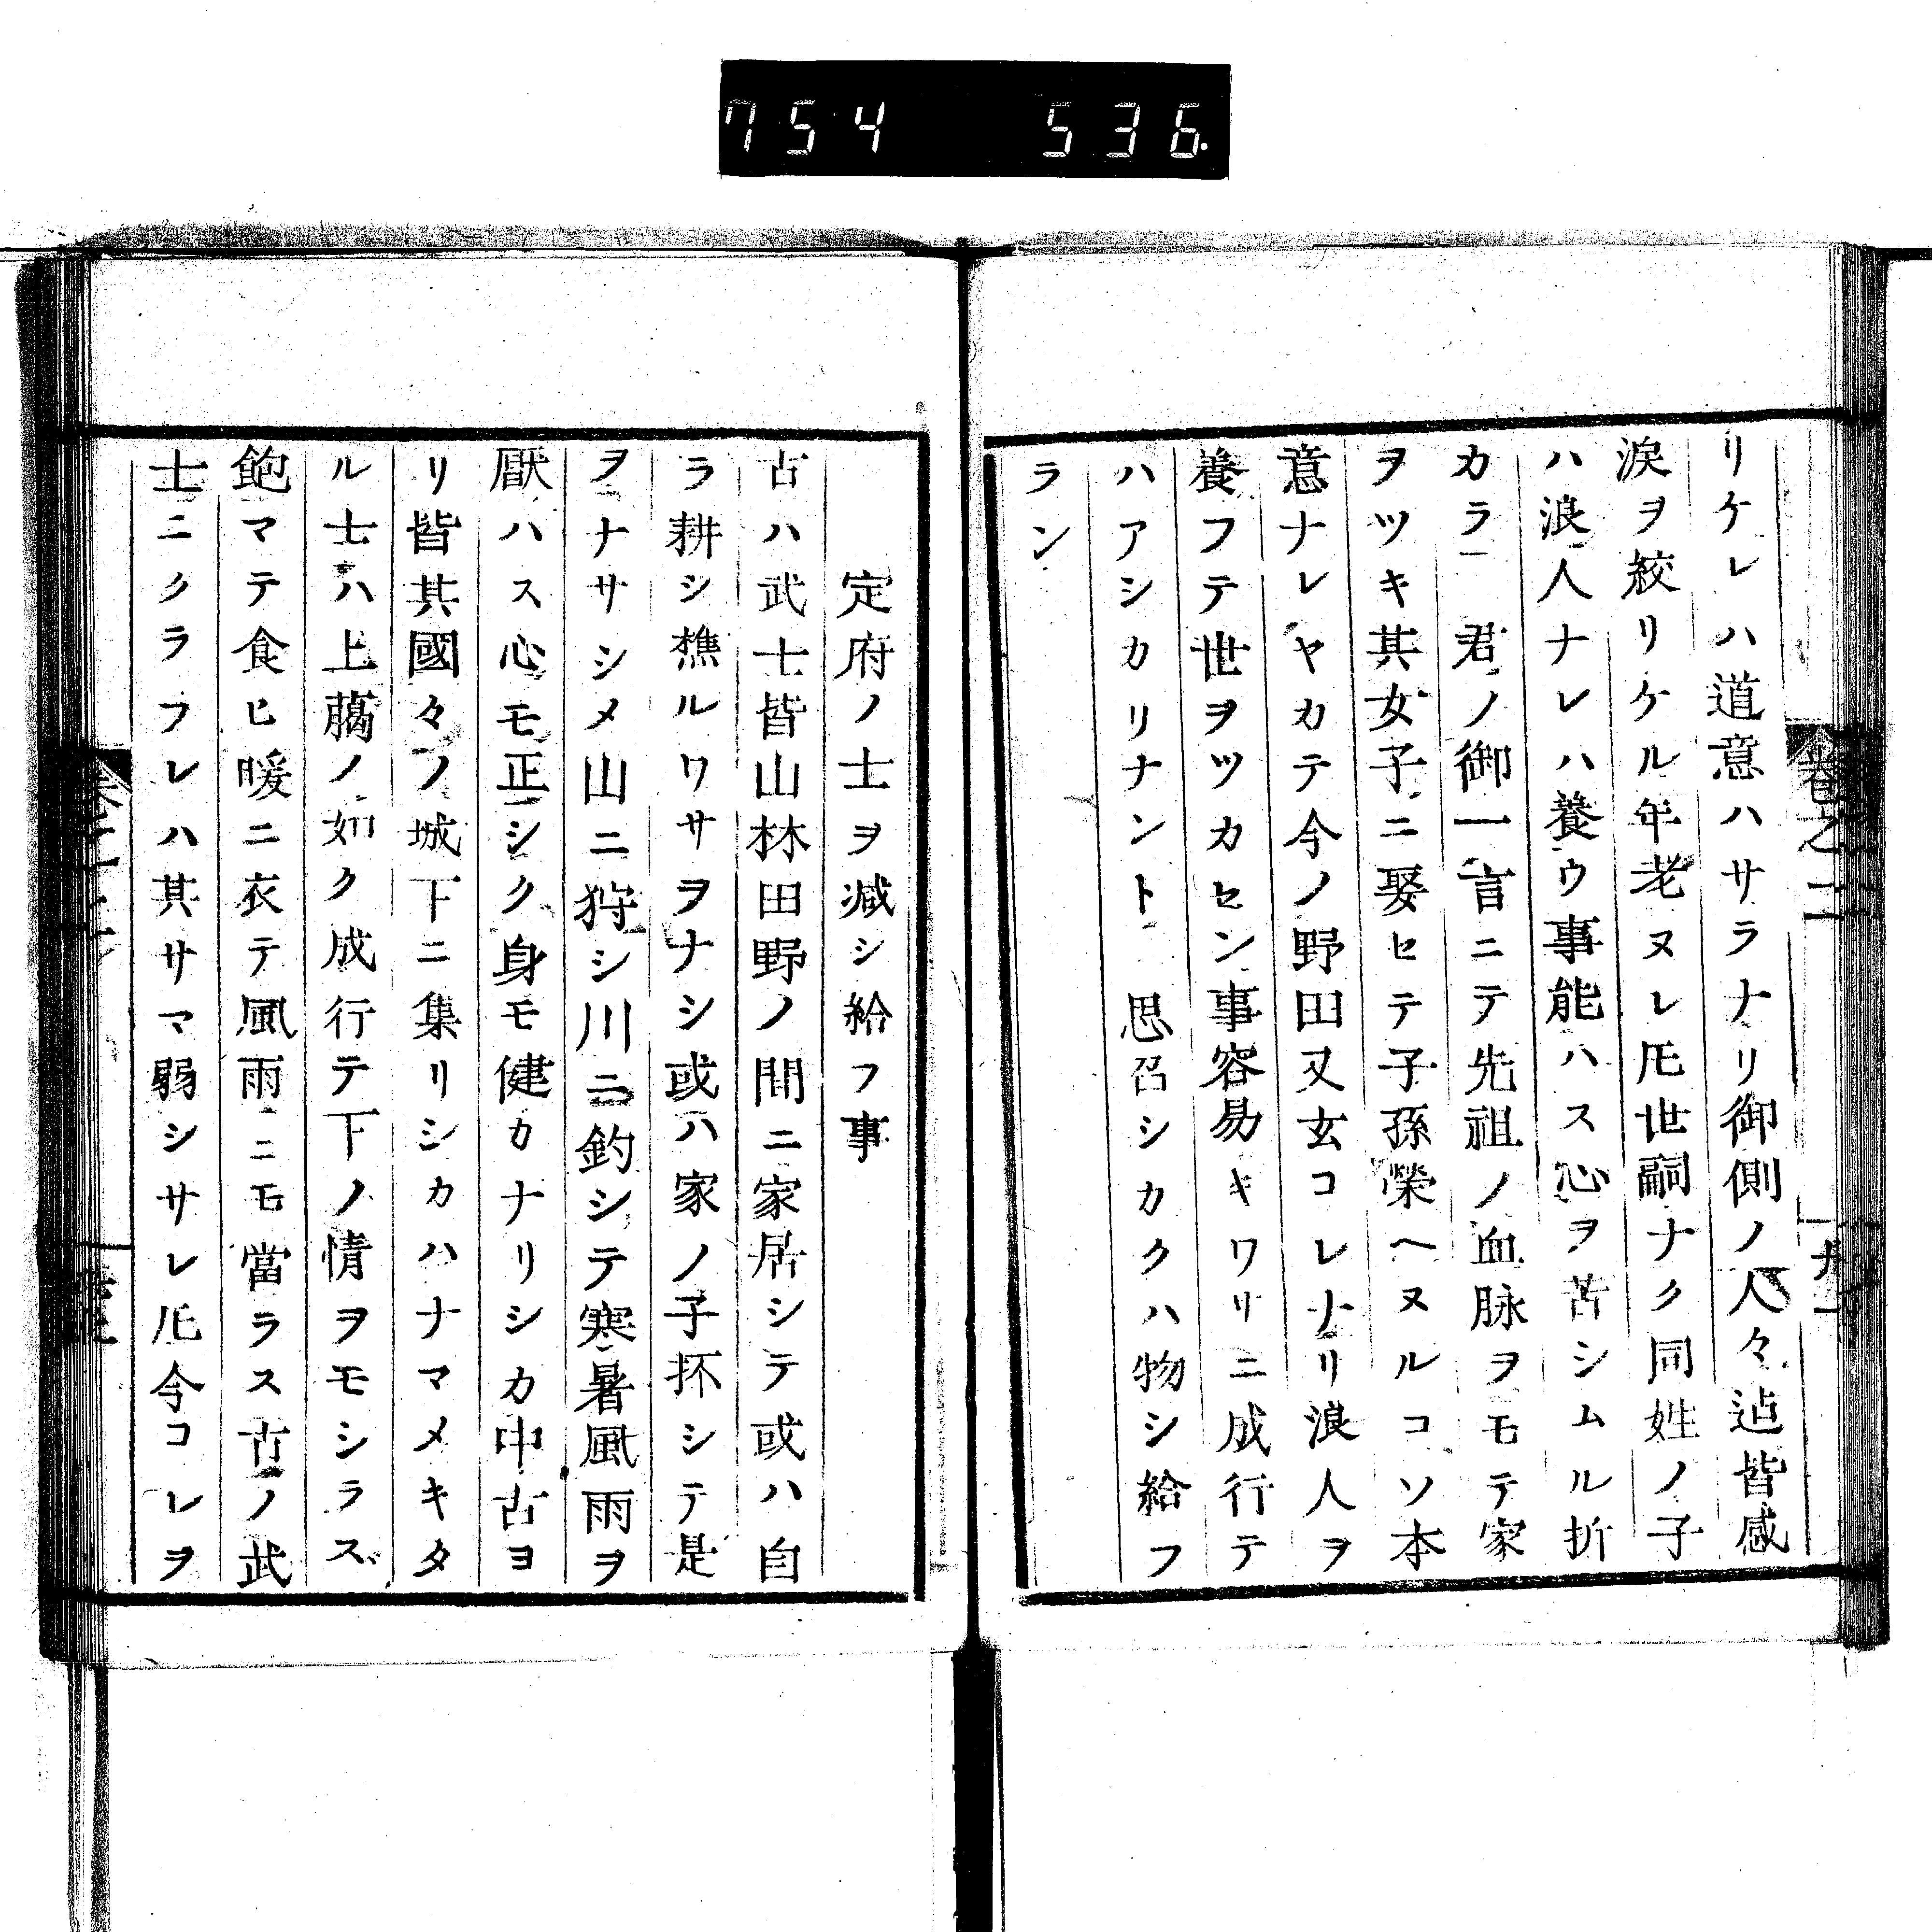 754 536.
リケレハ道意ハサラナリ御側ノ人々迠皆感
涙ヲ絞リケル年老ヌレ𪜈世嗣ナク同姓ノ子
ハ浪人ナレハ養ウ事能ハス心ヲ苦シムル折
カラ 君ノ御一言ニテ先祖ノ血脉ヲモテ家
ヲツキ其女子ニ娶セテ子孫榮ヘヌルコソ本
意ナレヤカテ今ノ野田又玄コレナリ浪人ヲ
養フテ世ヲツカセン事容易キワリニ成行テ
ハアシカリナント 思召シカクハ物シ給フ
ラン
定府ノ士ヲ減シ給フ事
古ハ武士皆山林田野ノ間ニ家居シテ或ハ自
ラ耕シ樵ルワサヲナシ或ハ家ノ子抔シテ是
ヲナサシメ山ニ狩シ川ニ釣シテ寒暑風雨ヲ
厭ハス心モ正シク身モ健カナリシカ中古ヨ
リ皆其國々ノ城下ニ集リシカハナマメキタ
ル士ハ上﨟ノ如ク成行テ下ノ情ヲモシラス
飽マテ食ヒ暖ニ衣テ風雨ニモ當ラス古ノ武
士ニクラフレハ其サマ弱シサレ𪜈今コレヲ
巻之二